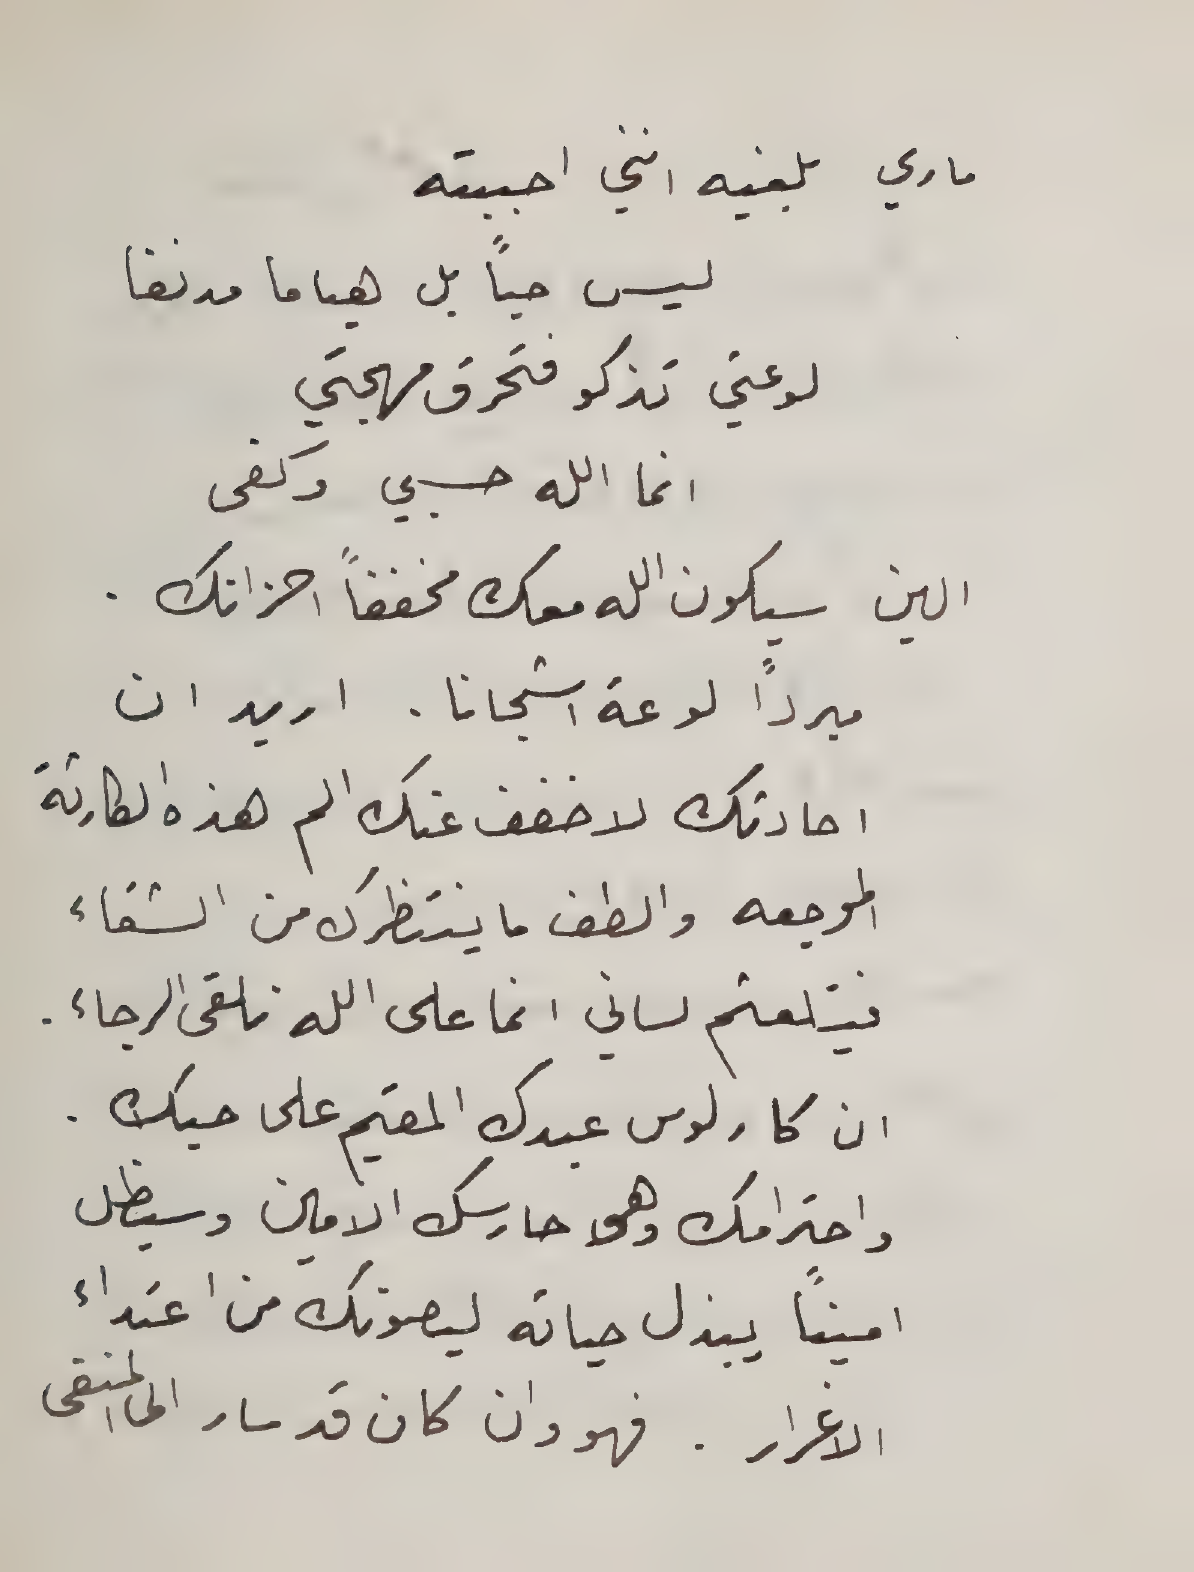 ماري بلغيه انني احببته
ليس حباً بل هياما مدنفا
لوعتي تذكو فتحرق مهجتي
انما الله حسبي وكفى
الين سيكون الله معك مخففاً احزانك .
مبرداً لوعة اشجانا . اريد ان
احادثك لاخفف عنك الم هذه الكارثة
الموجعه والطف ما ينتظرك من الشقاء
فيتلعثم لساني انما على الله نلقى الرجاء .
ان كارلوس عبدك المقيم على حبك .
واحترامك وهو حارسك الامين وسيظل
اميناً يبذل حياته ليصونك من اعتداء
الاغرار . فهو وان كان قد سار الى المنفى